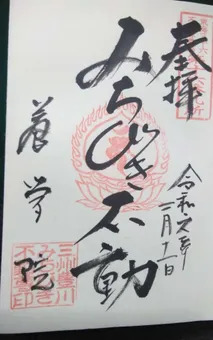 奉拝
みちびき不動
令和六年
二月十一日
養学院
三州豊川
みちびき
不動印